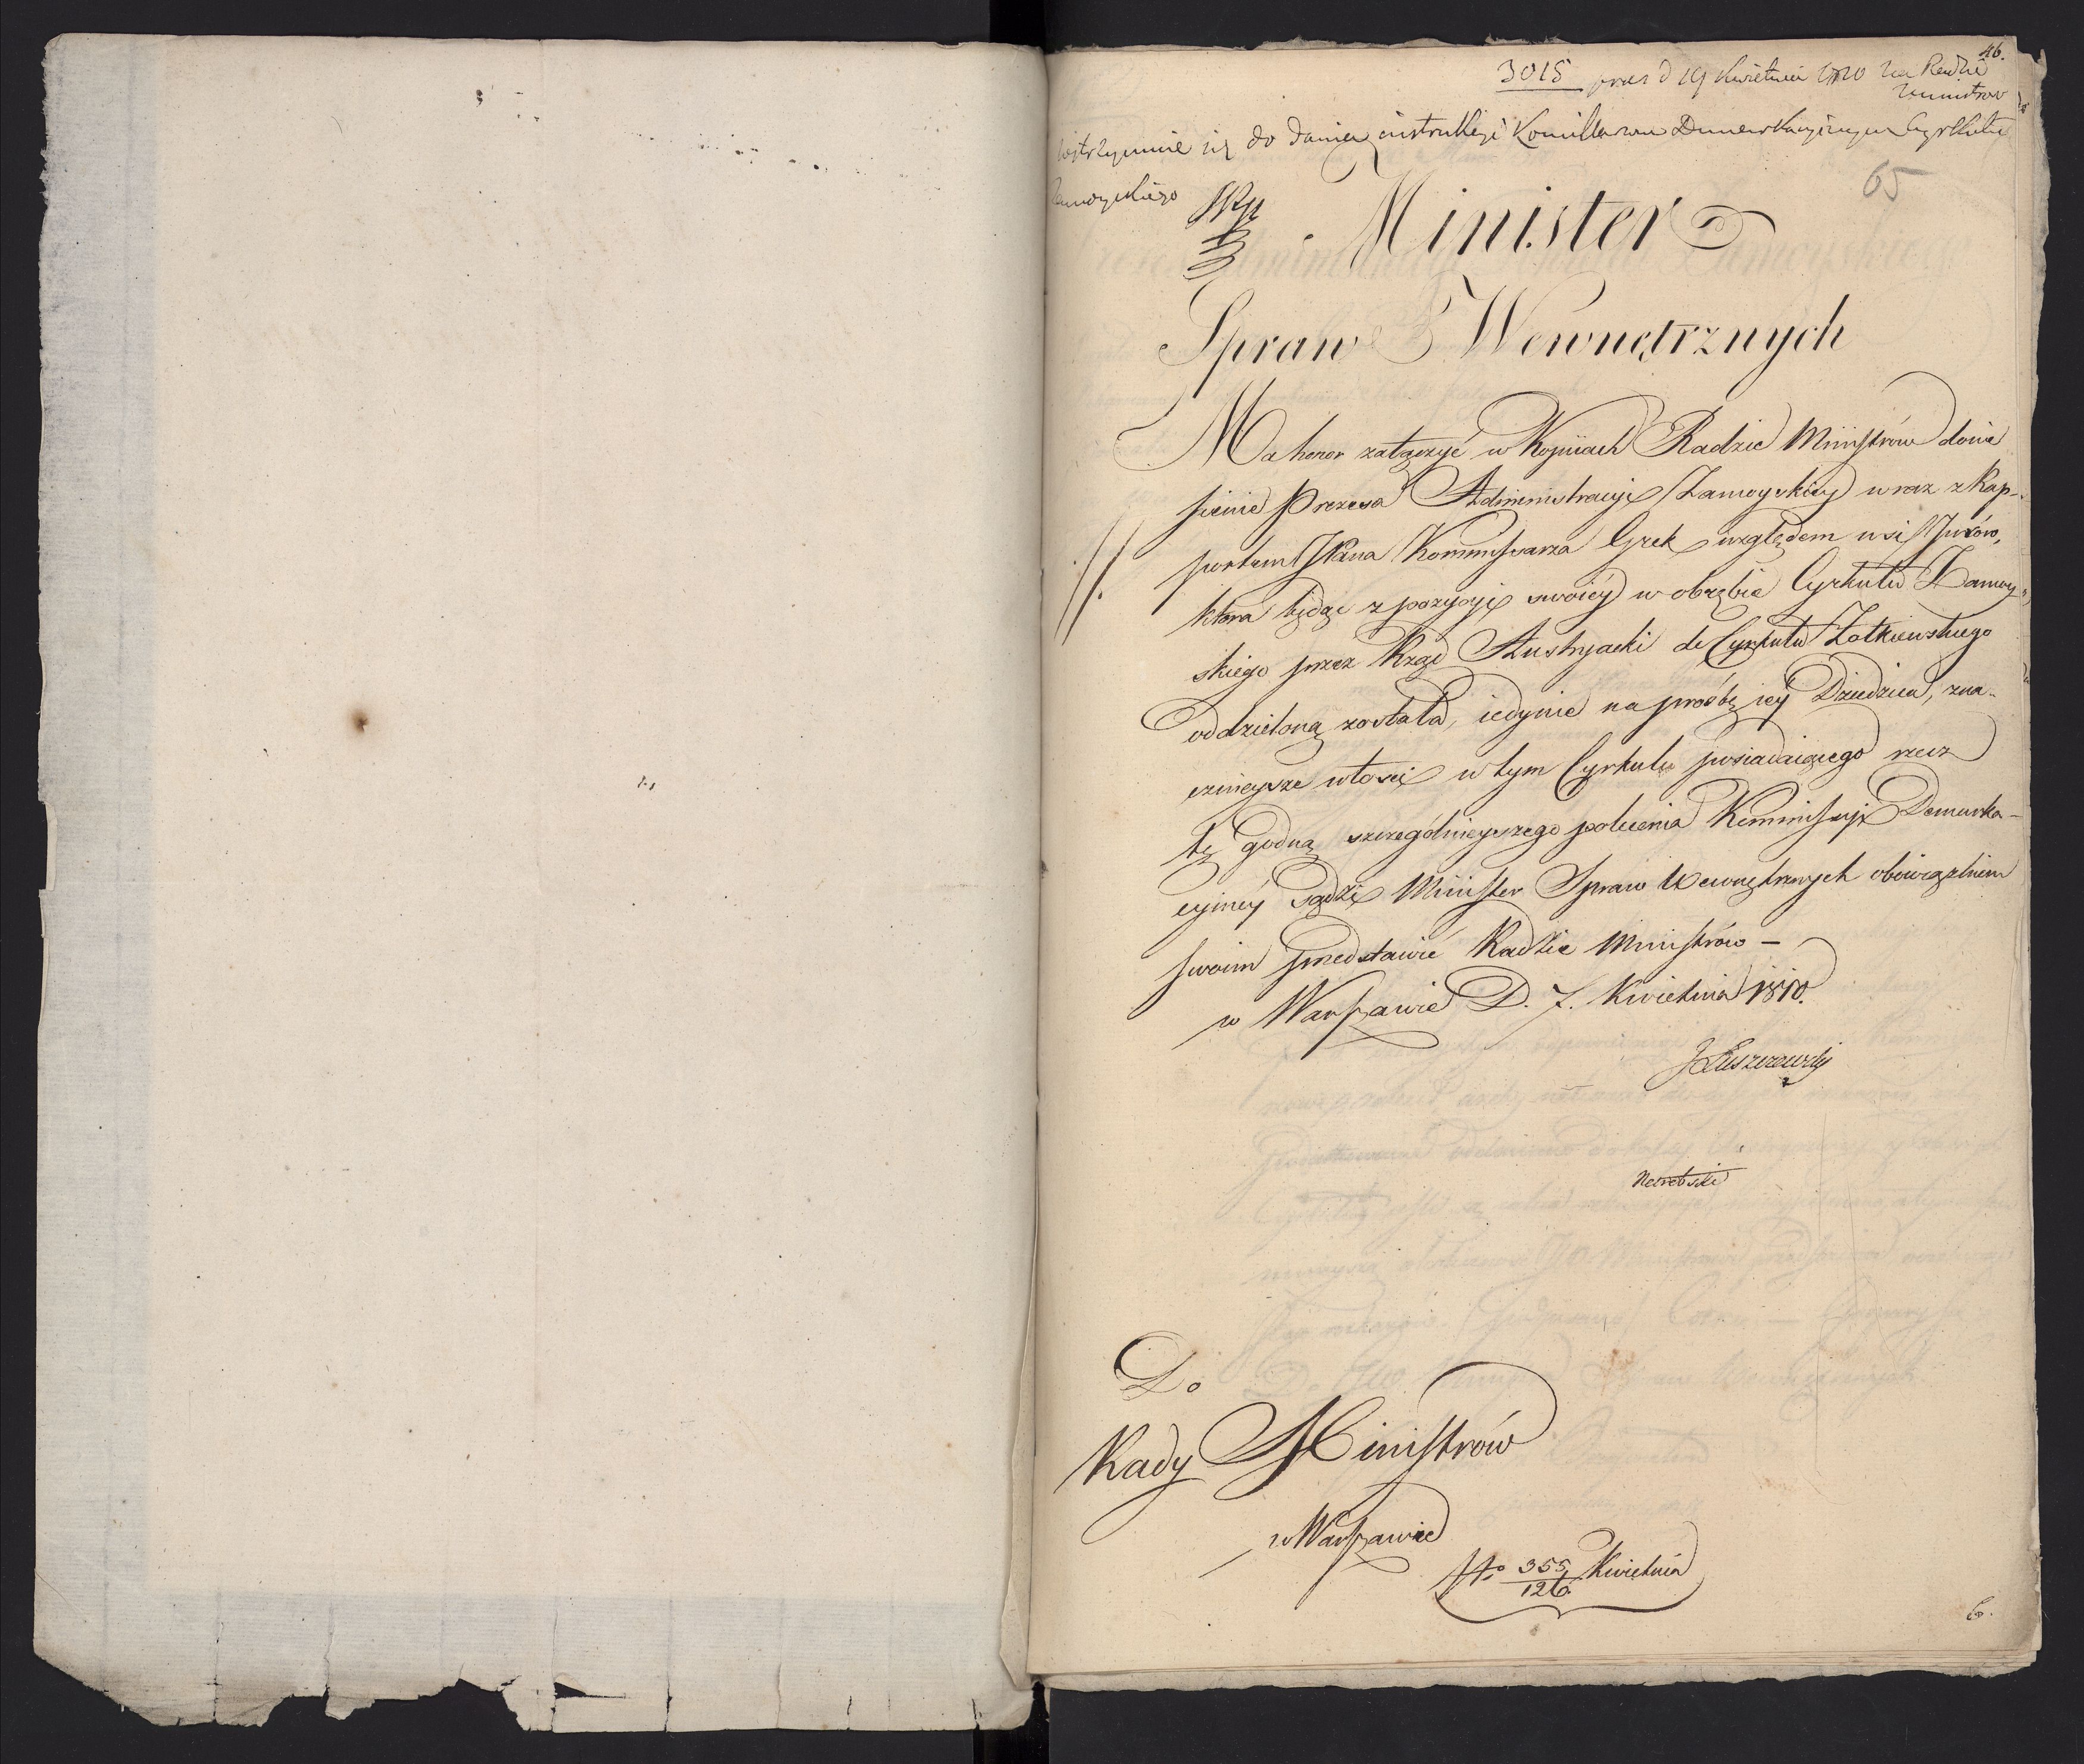 46.
3015 pras d 19 Kwietnia 1810 na Radzie
Ministrow
wstrzymuie się do dania instrukcyi Komissarzom Demarkacyinym Cyrkułu
Zamoyskiego
65
Minister
Spraw Wewnętrznych
Ma honor załączyć w Kopiiach Radzie Ministrów donie
sienie Prezesa Administracyi Zamoyskiey wraz z Rap-
portem JPana Kommissarza Grek względem wsi Jurów,
która będąc z pozycyi swoiéy w obrębie Cyrkułu Zamoy-
skiego przez Rząd Austryacki do Cyrkułu Żołkiewskiego
oddzieloną została, iedynie na prośbę iéy Dziedzica, zna-
cznieysze włości w tym Cyrkule posiadaiącego rzecz
tę godną szczególnieyszego polecenia Kommissyi Demarka-
cyinéy sądzi Minister Spraw Wewnętrznych obowiązkiem
swoim przedstawić Radzie Ministrów –
w Warszawie D. 7. Kwietnia 1810.
J Łuszczewski
Do
Rady Ministrów
w Warszawie
No 355/126 Kwietnia
6.